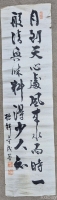 月到天心處風來水面時一
般清意味料得少人知